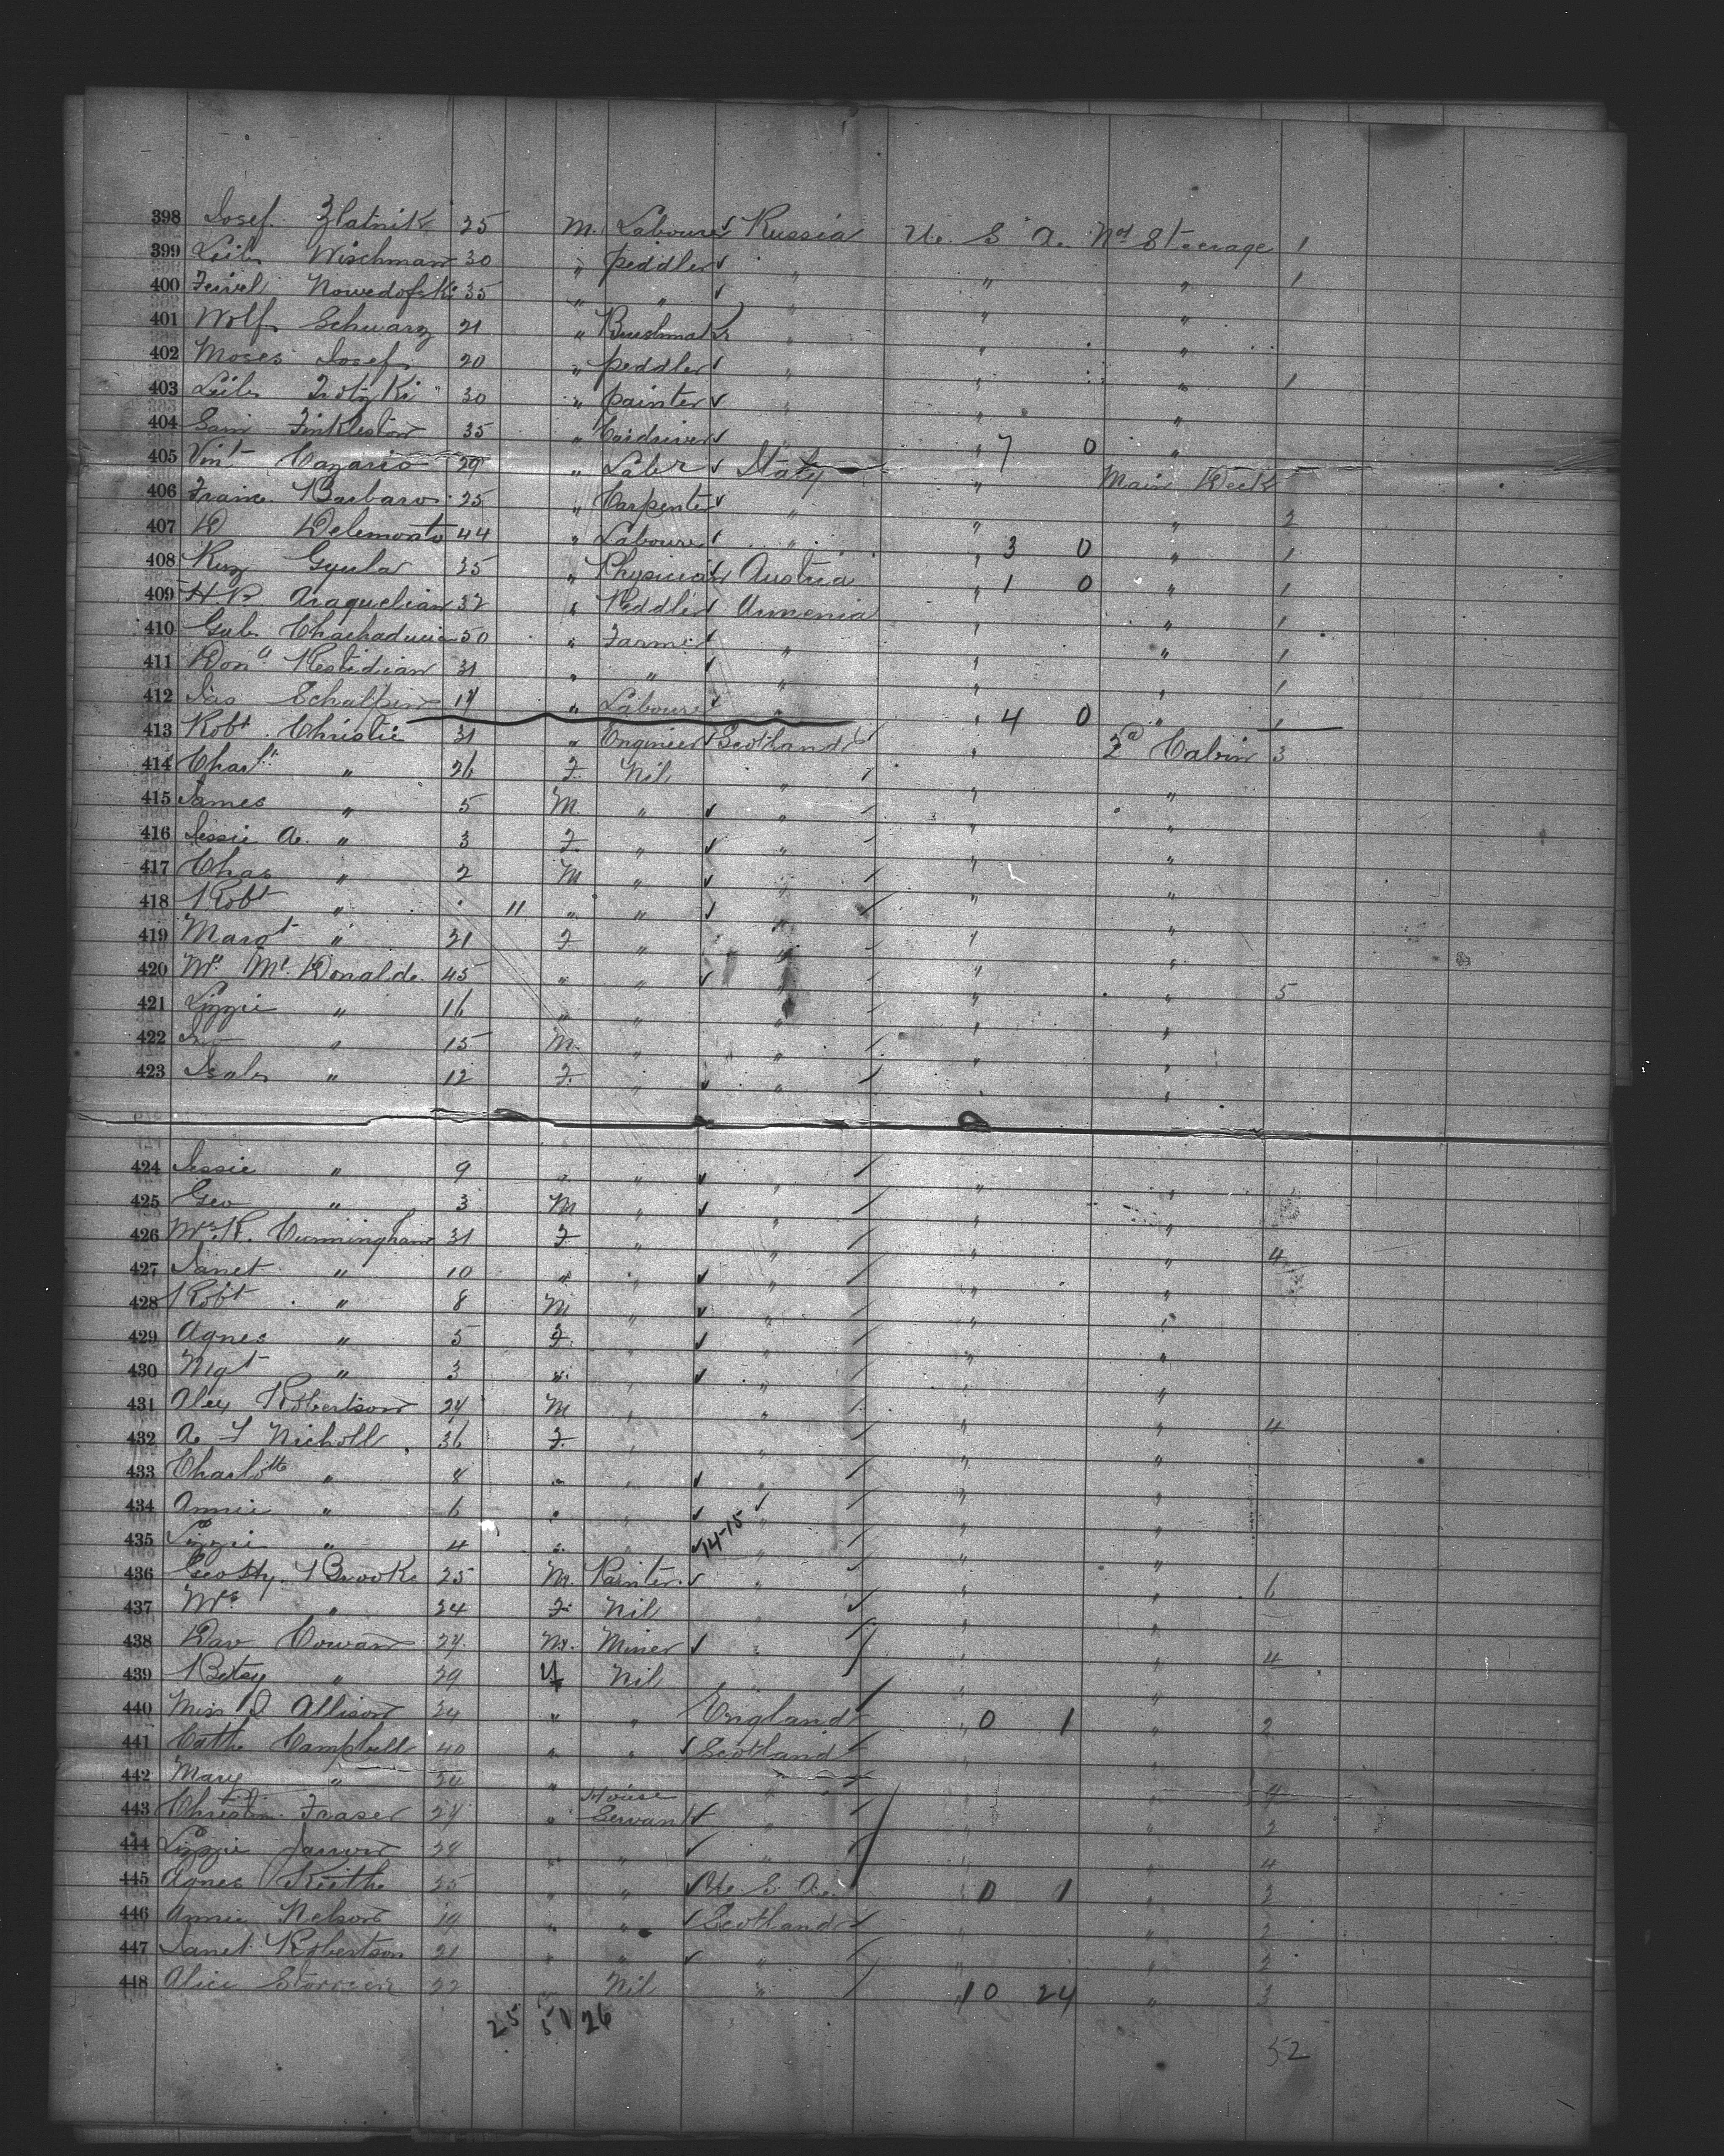 398 Josef Zlatnik 25 M. Labourer ✓ Russia U. S. A. Nº1 Steerage 1
399 Leib Wischman 30 " peddler ✓ " " " 1
400 Feivel Nowedofski 35 " " ✓ " " "
401 Wolf Schwarz 21 " Brushmakr " " "
402 Moses Josef 20 " peddler ✓ " " " 1
403 Leib Trotzki 30 " painter ✓ " " "
404 Sam Finkleston 35 " Cardriver ✓ " " 7 0 "
405 Vint Cazario 29 " Labr ✓ Italy " Main Deck
406 Franc. Barbaro 25 " Carpenter ✓ " " " 2
407 D Delemonto 44 " Labourer ✓ " " 3 0 " 1
408 Kiz Gyula 35 " Physician Austria " 1 0 " 1
409 H. P. Araquelian 32 " Peddler ✓ Armenia " " 1
410 Gab. Chachaduria 50 " Farmer ✓ " " " 1
411 Don Restidian 31 " " ✓ " " " 1
412 Jas Schalfein 19 " Labourer ✓ " " 4 0 " 1
413 Robt. Christie 31 " Engineer ✓ Scotland " 2d Cabin 3
414 Charltt " 26 F. Nil " / " "
415 James " 5 M. " ✓ " / " "
416 Jessie A. " 3 F. " ✓ " / " "
417 Chas " 2 M " ✓ " / " "
418 Robt " 11 " " ✓ " / " "
419 Margt " 21 F " " / " "
420 Mrs McDonald 45 " ✓ " / " " 5
421 Lizzie " 16 " " " / " "
422 " 15 M. " " / " "
423 Isab " 12 F. " ✓ " / " "
424 Jessie " 9 " " ✓ " / " "
425 Geo " 3 M " ✓ " / " "
426 Mrs. K. Cunningham 31 F " " / " " 4
427 Janet " 10 " " ✓ " / " "
428 Robt " 8 M " ✓ " / " "
429 Agnes " 5 F. " ✓ " / " "
430 Mgt " 3 " " ✓ " / " "
431 Alex Robertson 24 M " " / " " 4
432 A Nicholl 36 F. " " / " "
433 Charlotte " 8 " " ✓ " / " "
434 Annie " 6 " " ✓ " ✓ / " "
435 Lizzie " 4 " " ✓ 14-15 " / " "
436 Geo Hy. Brooks 25 M. Painter ✓ " / " " 6
437 Mrs " 24 F. Nil " ✓ " "
438 Dav Cowan 24 M. Miner ✓ " / " " 4
439 Betsy " 29 F Nil " / " "
440 Miss J Allison 24 " " England 0 1 " 2
441 Cathe Campbell 40 " " ✓ Scotland " "
442 Mary " 24 " " " " 4
House
443 Christin. Fraser 24 " Servant ✓ " / " " 2
444 Lizzie 28 " " ✓ " / " " 4
445 Agnes Keith 25 " " ✓ U. S. A. " 0 1 " 2
446 Annie Nelson 19 " " ✓ Scotland ✓ " " 2
447 Janet Robertson 21 " " ✓ " / " " 2
448 Alice 22 " Nil " / 10 24 " 3
25 51 26
52